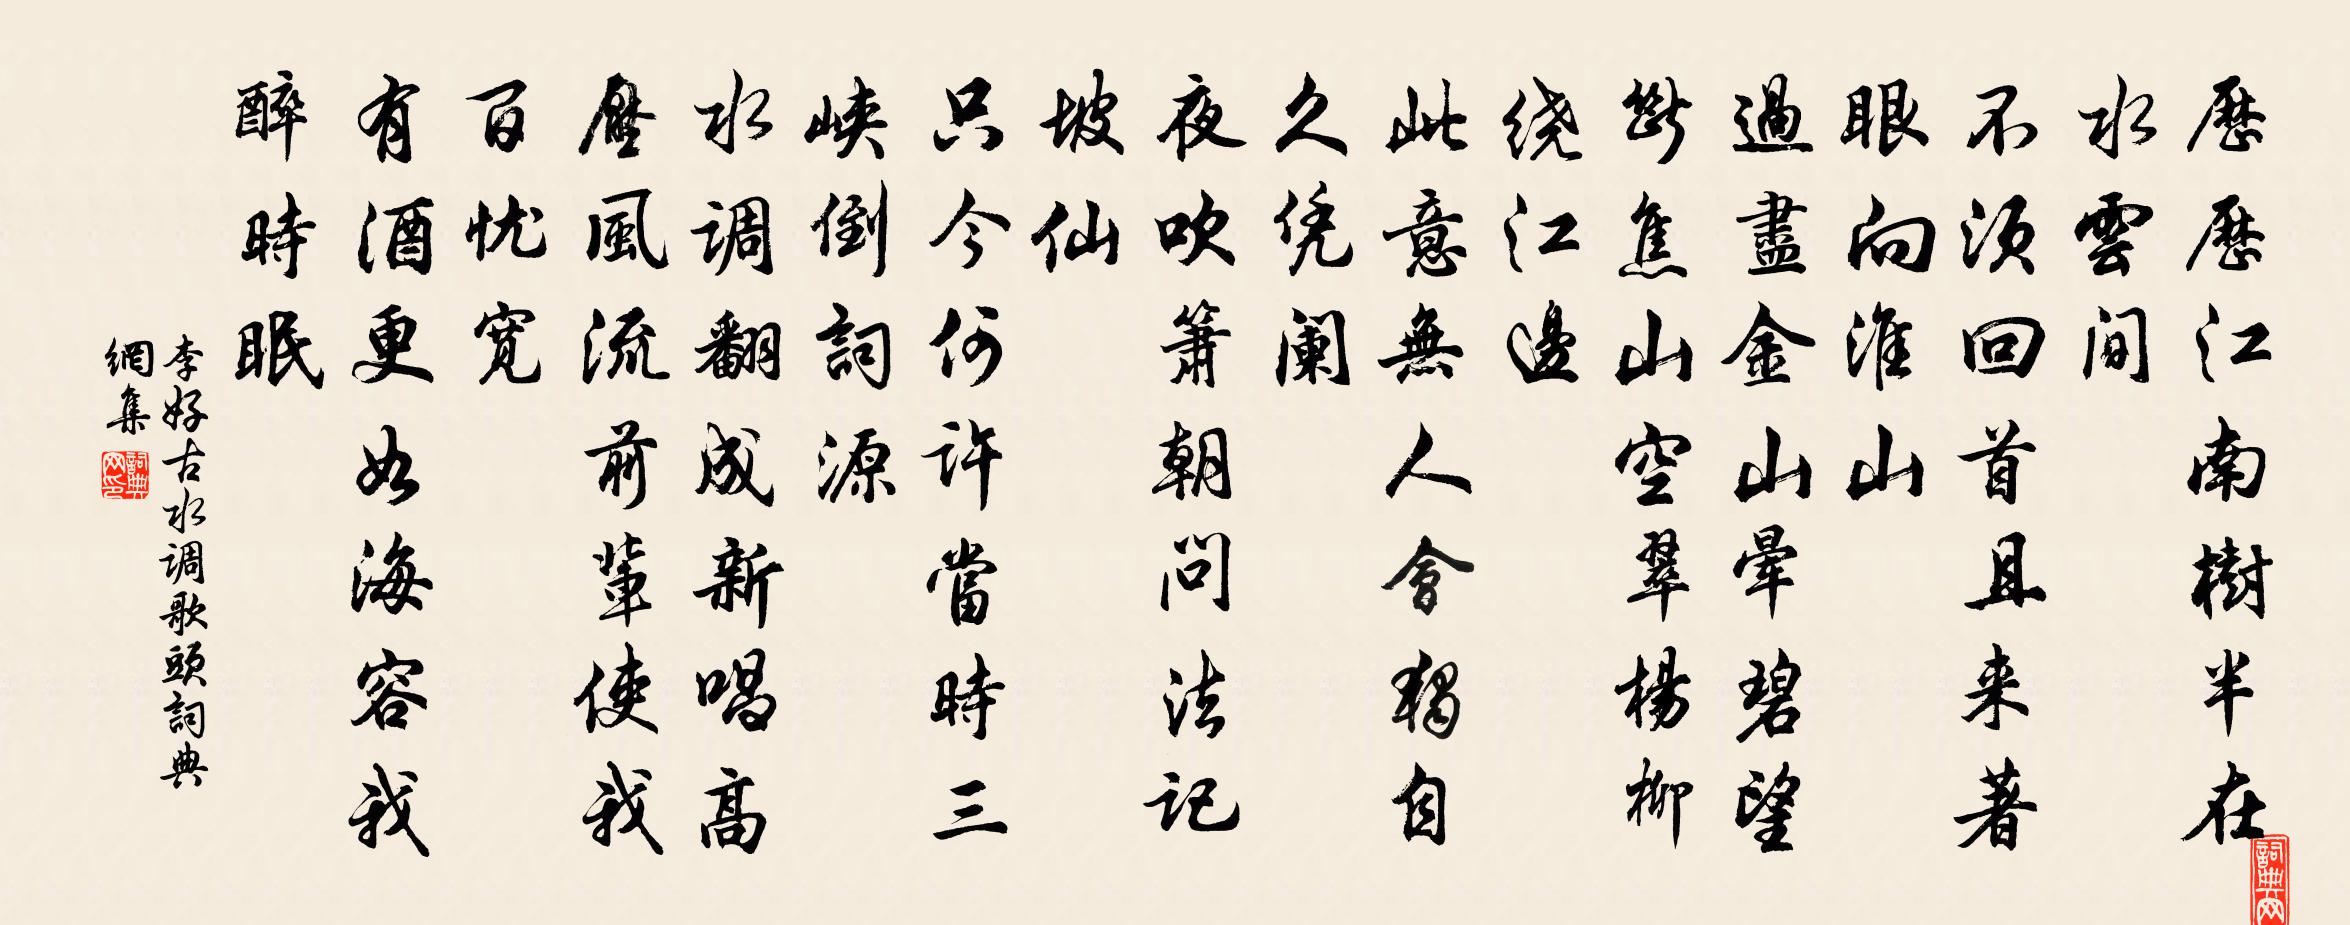 歷歷江南樹半在
水雲间
不须回首且来著
眼向淮山
過盡金山暈碧望
斷焦山空翠楊柳
绕江邊
此意無人會獨自
久凭阑
夜吹箫朝问法记
坡仙
只今何许當時三
峡倒詞源
水调翻成新唱高
壓風流前輩使我
百忧寬
有酒更如海容我
醉時眠
李好古水调歌頭詞典
網集
詞典网印
詞典网